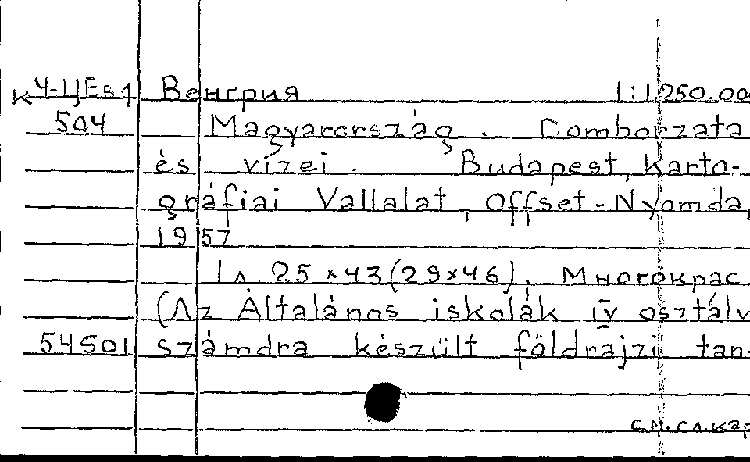 К4-Ц/Es1 Венгрия 1:1.250.00
504 Magyarország. Domborzata
és vizei. Budapest, Karto-
gráfiai Vallalat, Offset-Nyomda,
1957
1л 25×43(29×46). Многокрас
(Az Általános iskolák IV osztály
54501 számdra készült földrajzi tan-
см.сл.кар